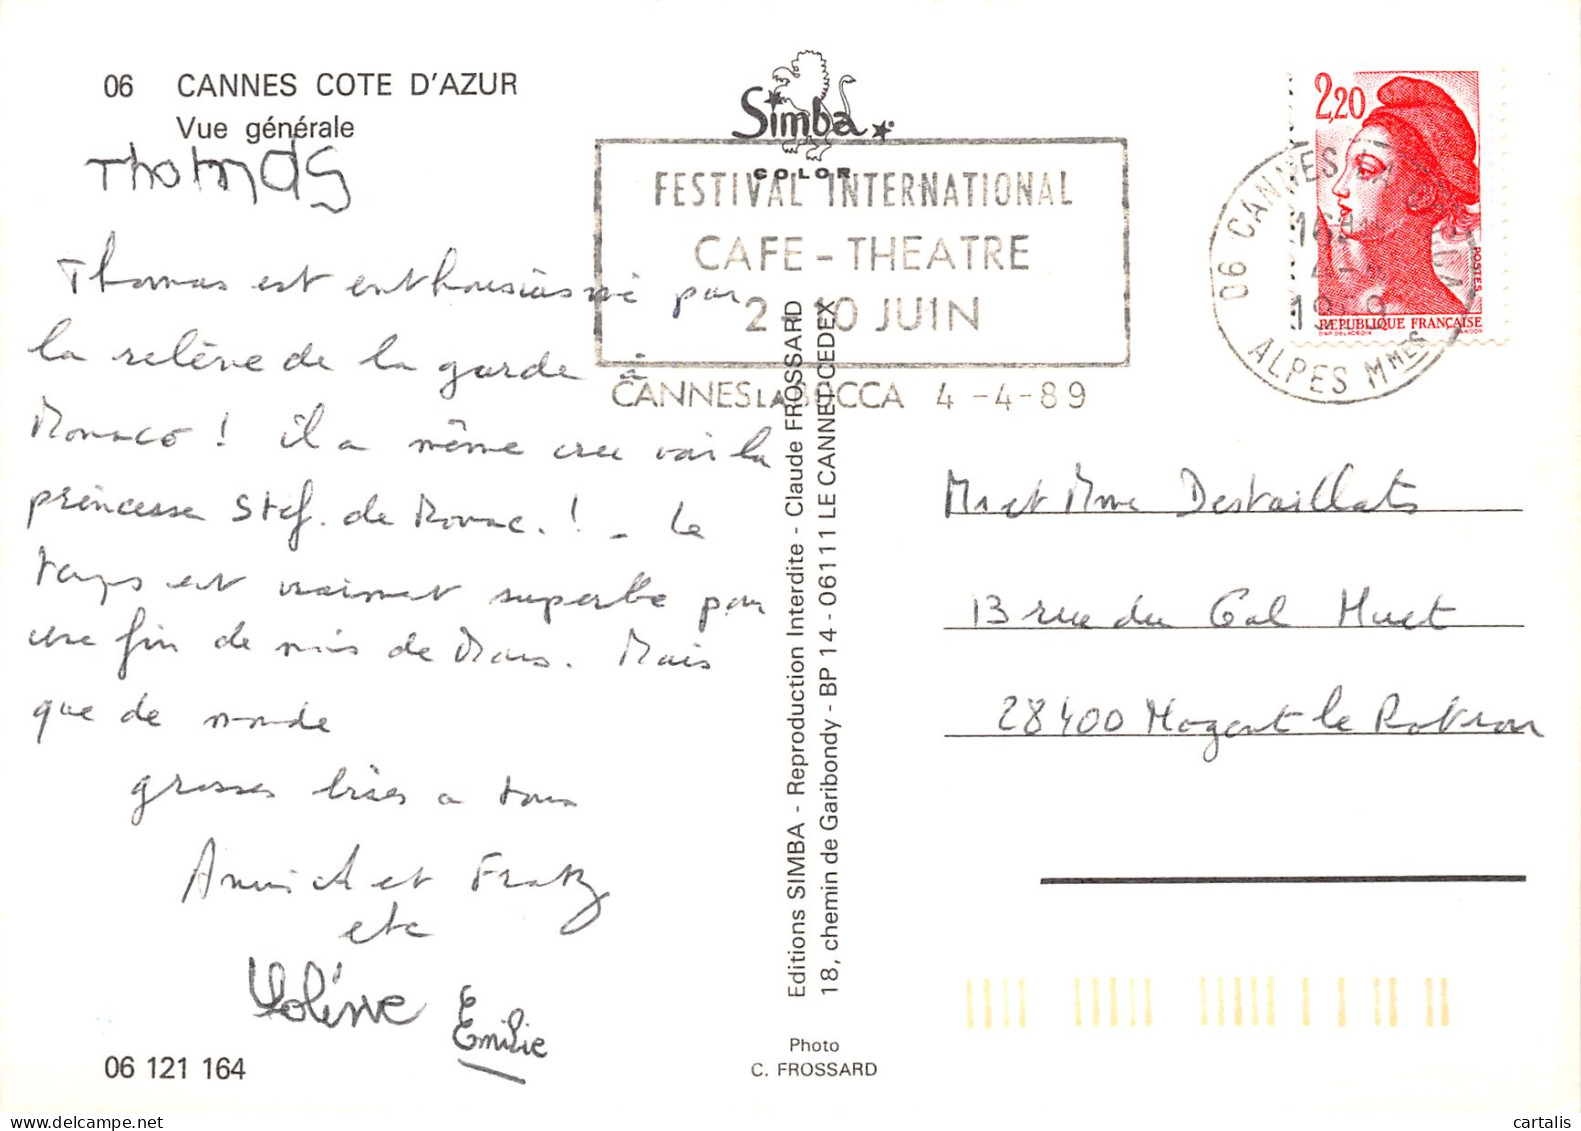 06 CANNES COTE D'AZUR
Vue générale
Thomas
Thomas est enthousiasmé par
la relève de la garde à
Monaco ! il a même cru voir la
princesse Stef. de Monac. ! - Le
temps est vraiment superbe pour
une fin de mois de Mars. Mais
que de monde
grosses bises a tous
Annick et
etc
Solène Emilie
06 121 164
Simba
COLOR
FESTIVAL INTERNATIONAL
CAFE - THEATRE
2 - 10 JUIN
CANNES LA BOCCA 4 - 4 - 89
Editions SIMBA - Reproduction Interdite - Claude FROSSARD
18, chemin de Garibondy - BP 14 - 06111 LE CANNET CEDEX
Photo
C. FROSSARD
2,20
POSTES
REPUBLIQUE FRANÇAISE
D'AP. DELACROIX GANDON
06 CANNES LA BOCCA
16H
4 - 4
1989
ALPES MMES
Mr et Mme Destaillats
13 rue du Gal Huet
28400 Nogent le Rotrou
cartalis